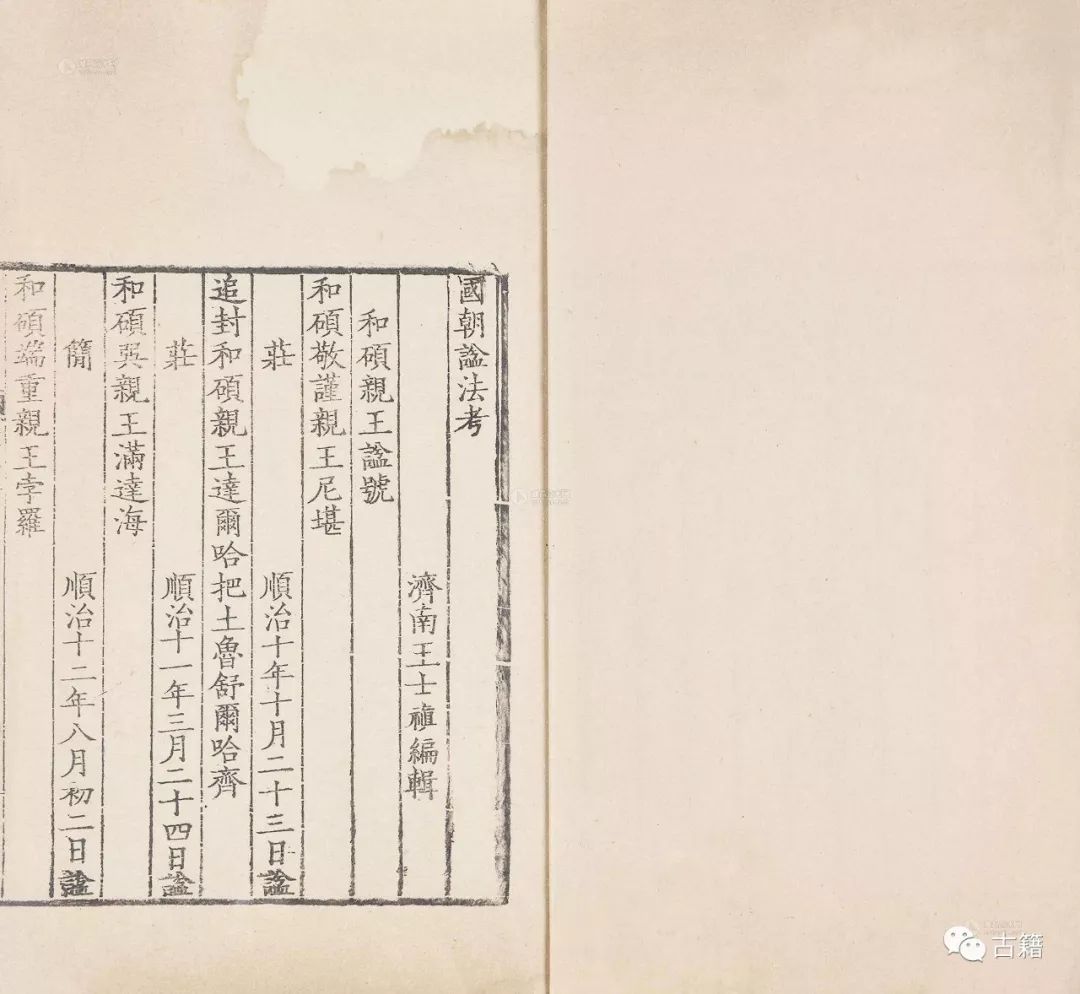 國朝諡法考
濟南王士禛編輯
和碩親王諡號
和碩敬謹親王尼堪
莊 順治十年十月二十三日諡
追封和碩親王達爾哈把土魯舒爾哈齊
莊 順治十一年三月二十四日諡
和碩巽親王滿達海
簡 順治十二年八月初二日諡
和碩端重親王孛羅
古籍